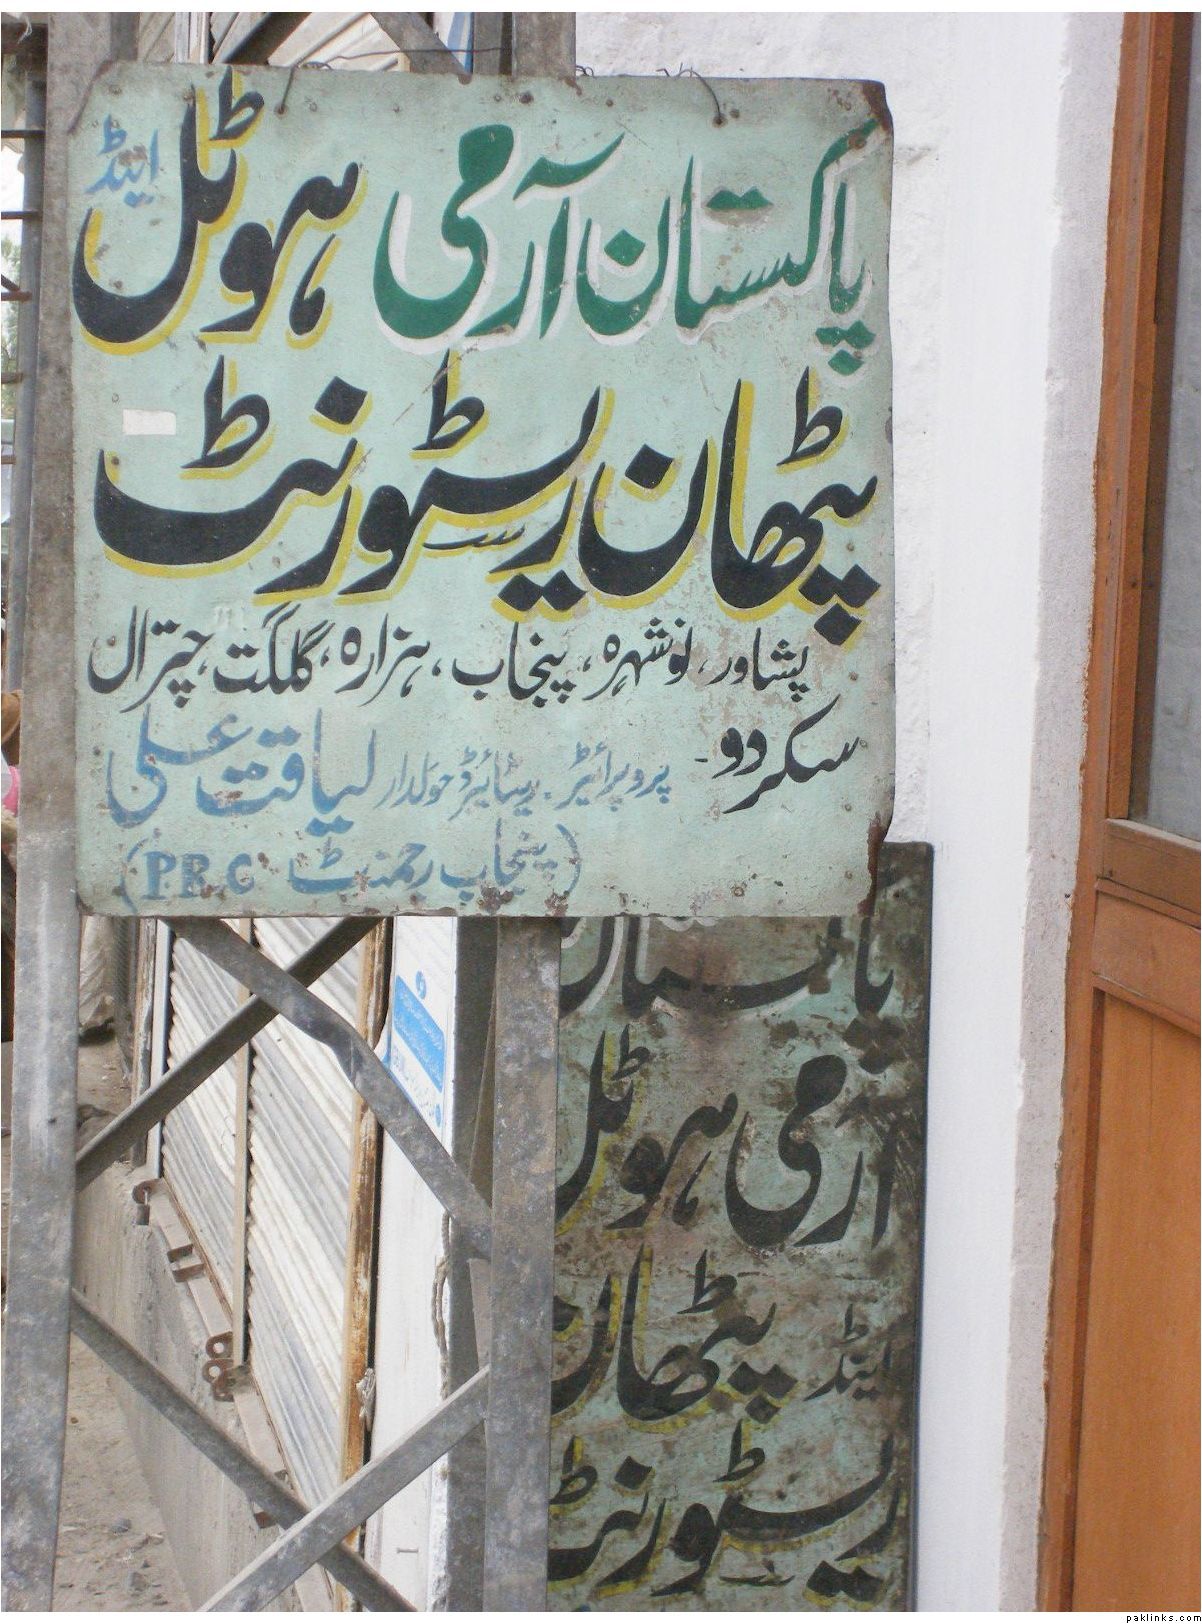 پاکستان آرمی ہوٹل اینڈ
پٹھان ریسٹورنٹ
پشاور، نوشہرہ، پنجاب، ہزارہ، گلگت، چترال
سکردو-
پروپرائیٹر. ریٹائیرڈ حولدار لیاقت علی
(پنجاب رجمنٹ P.R.C)
پاکستان
آرمی ہوٹل
اینڈ پٹھان
ریسٹورنٹ
paklinks.com